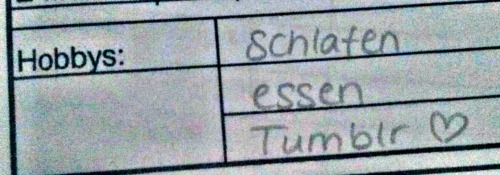 Hobbys:
schlafen
essen
Tumblr ♡